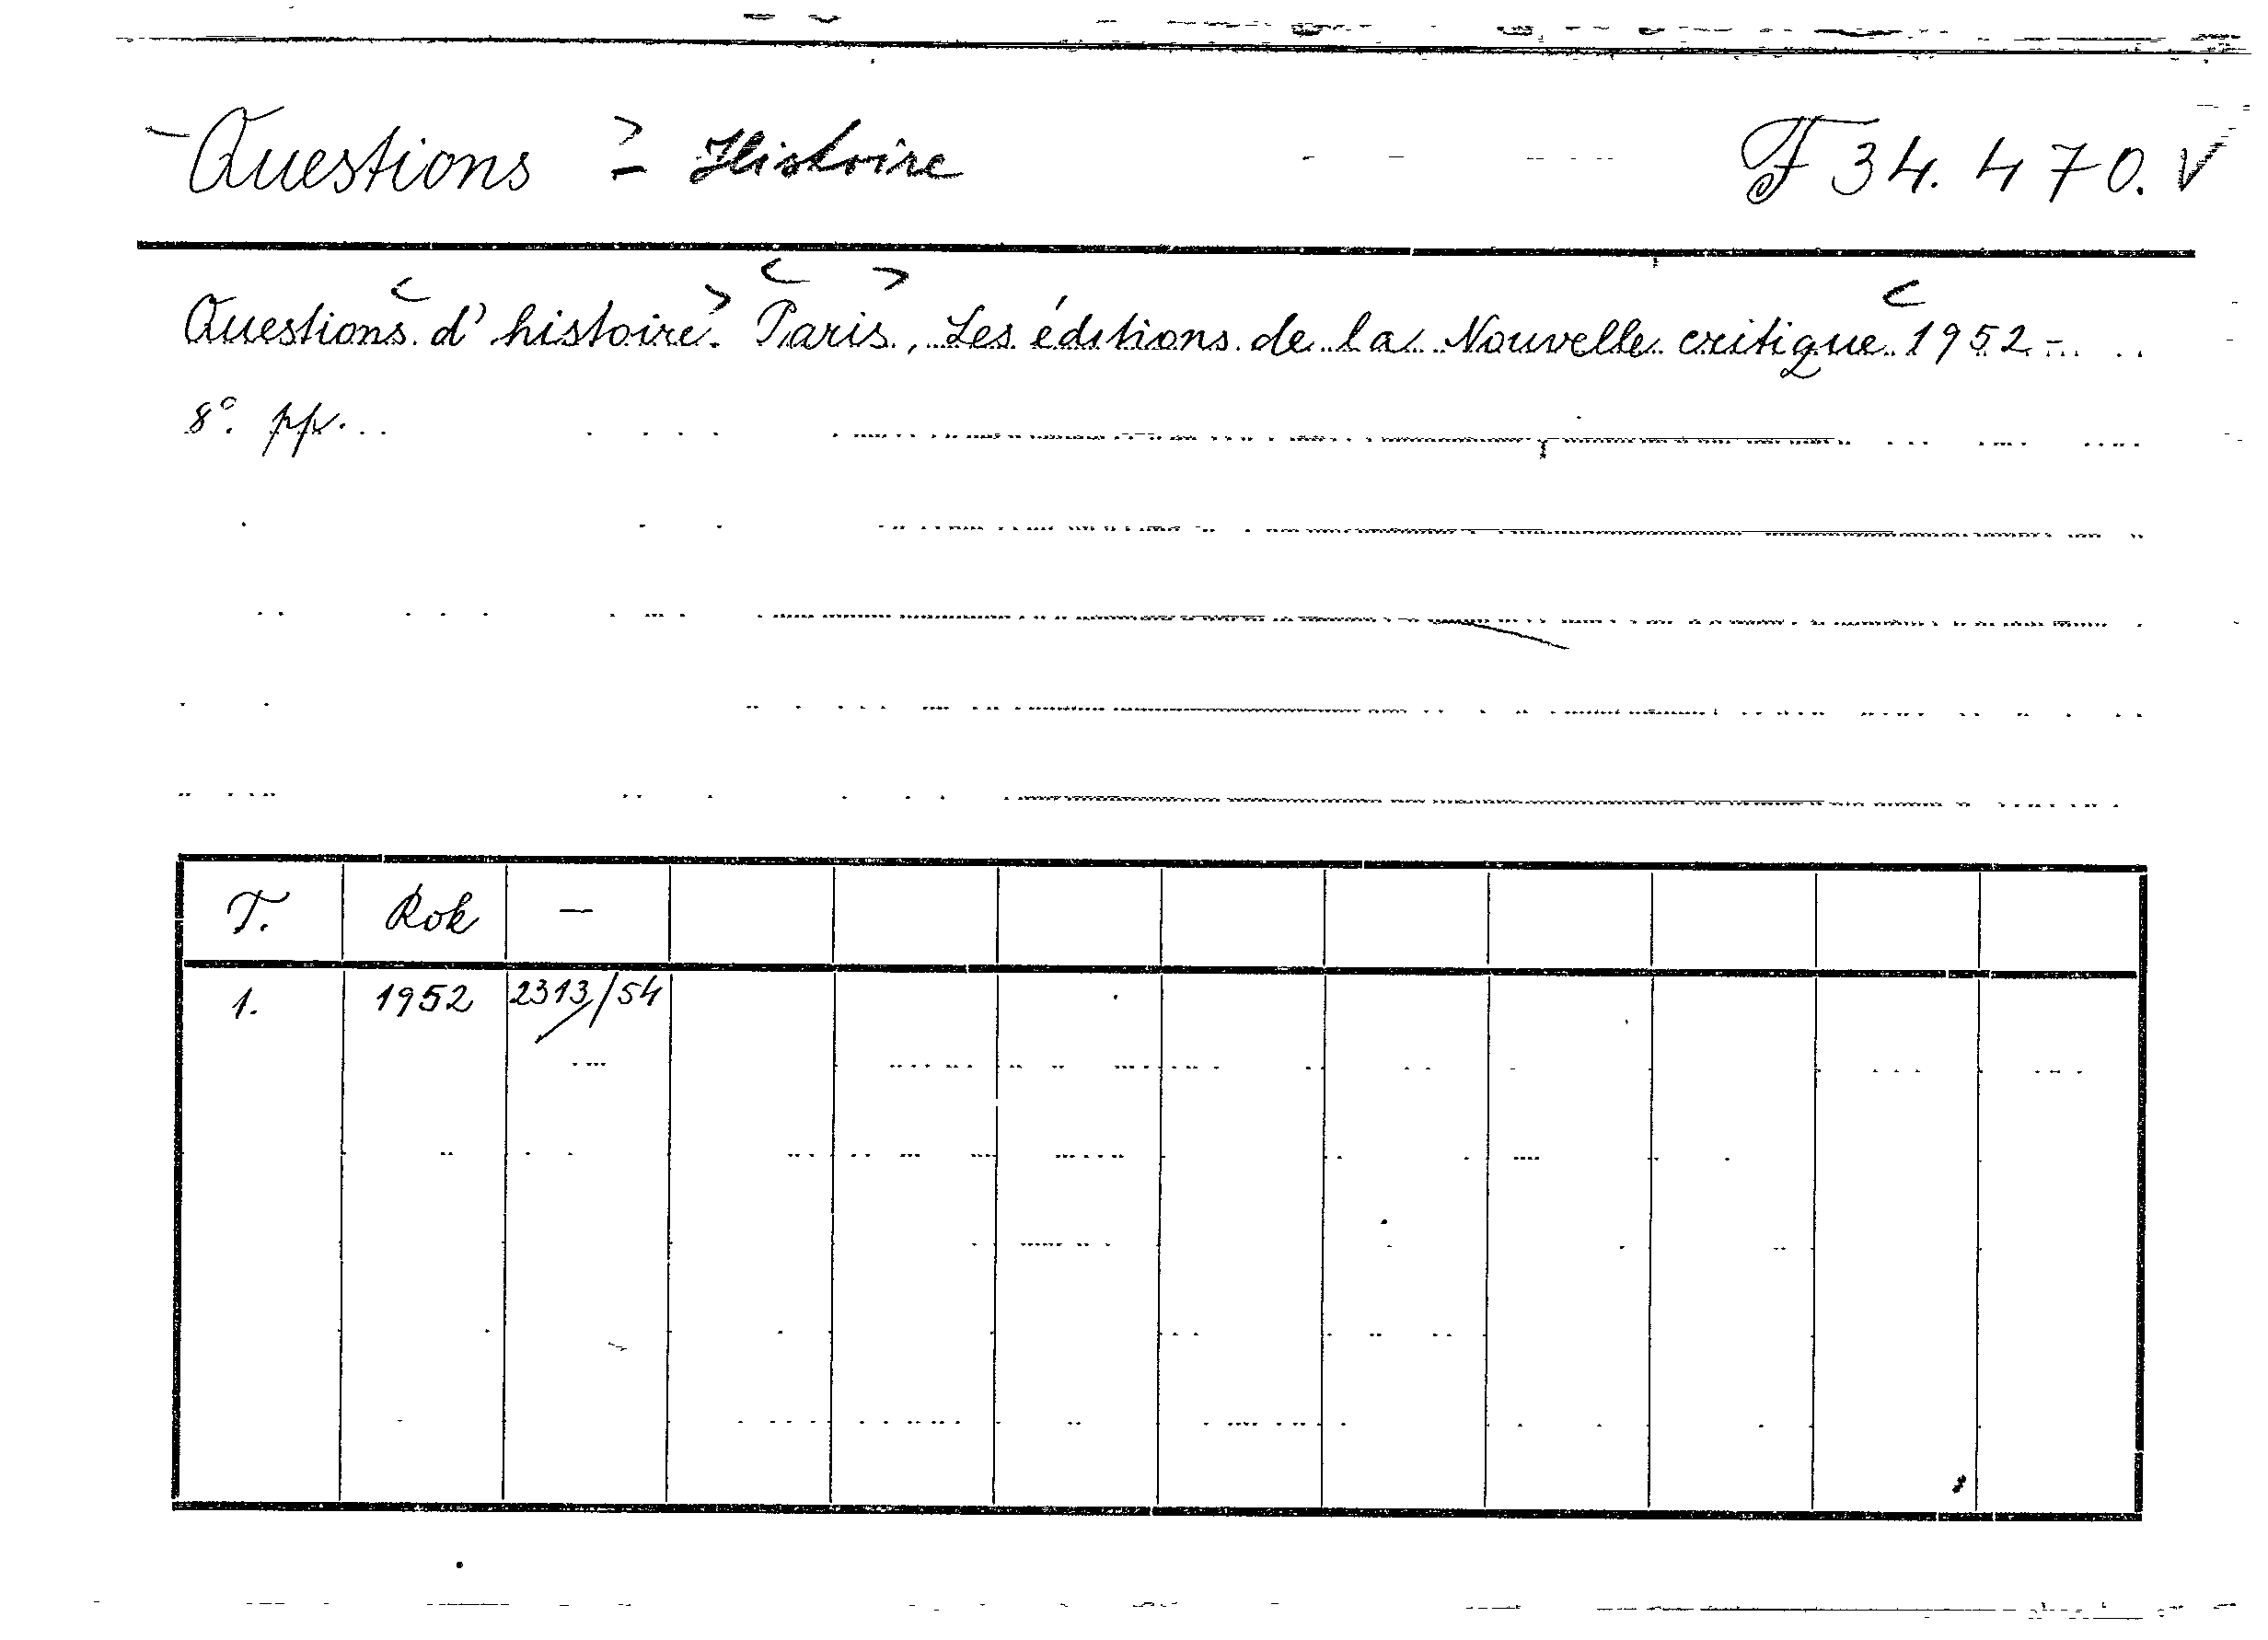 Questions - Histoire F 34.470. V
Questions d'histoire. Paris, Les éditions de la Nouvelle critique 1952-
8°. pp.
T. Rok —
1. 1952 2313/54